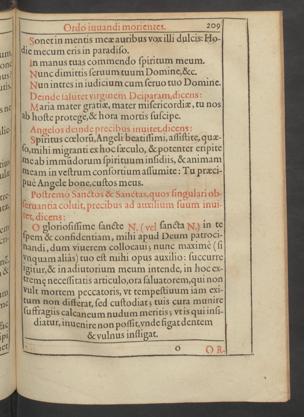 Ordo iuuandi morientes. 209
Sonet in mentis meæ auribus vox illi dulcis: Ho-
die mecum eris in paradiso.
In manus tuas commendo spiritum meum.
Nunc dimittis seruum tuum Domine, &c.
Nun intres in iudicium cum seruo tuo Domine.
Deinde salutet virginem Deiparam, dicens:
Maria mater gratiæ, mater misericordiæ, tu nos
ab hoste protege, & hora mortis suscipe.
Angelos deinde precibus inuitet, dicens:
Spiritus cœlorũ, Angeli beatissimi, assistite, quæ-
so, mihi migranti ex hoc sæculo, & potenter eripite
me ab immudorum spirituum insidiis, & animam
meam in vestrum consortium assumite: Tu præci-
puè Angele bone, custos meus.
Postremo Sanctos & Sanctas, quos singulari ob-
seruantia coluit, precibus ad auxilium suum inui-
tet, dicens:
O gloriosissime sancte N. (vel sancta N.) in te
spem & confidentiam, mihi apud Deum patroci-
nandi, dum viuerem collocaui; nunc maximè (si
vnquam aliàs) tuo est mihi opus auxilio: succurre
igitur, & in adiutorium meum intende, in hoc ex-
tremę necessitatis articulo, ora saluatorem, qui non
vult mortem peccatoris, vt tempestiuum iam exi-
tum non differat, sed custodiat; tuis cura munire
suffragiis calcaneum nudum meritis; vt is qui insi-
diatur, inuenire non possit, vnde figat dentem
& vulnus infligat.
O OR-